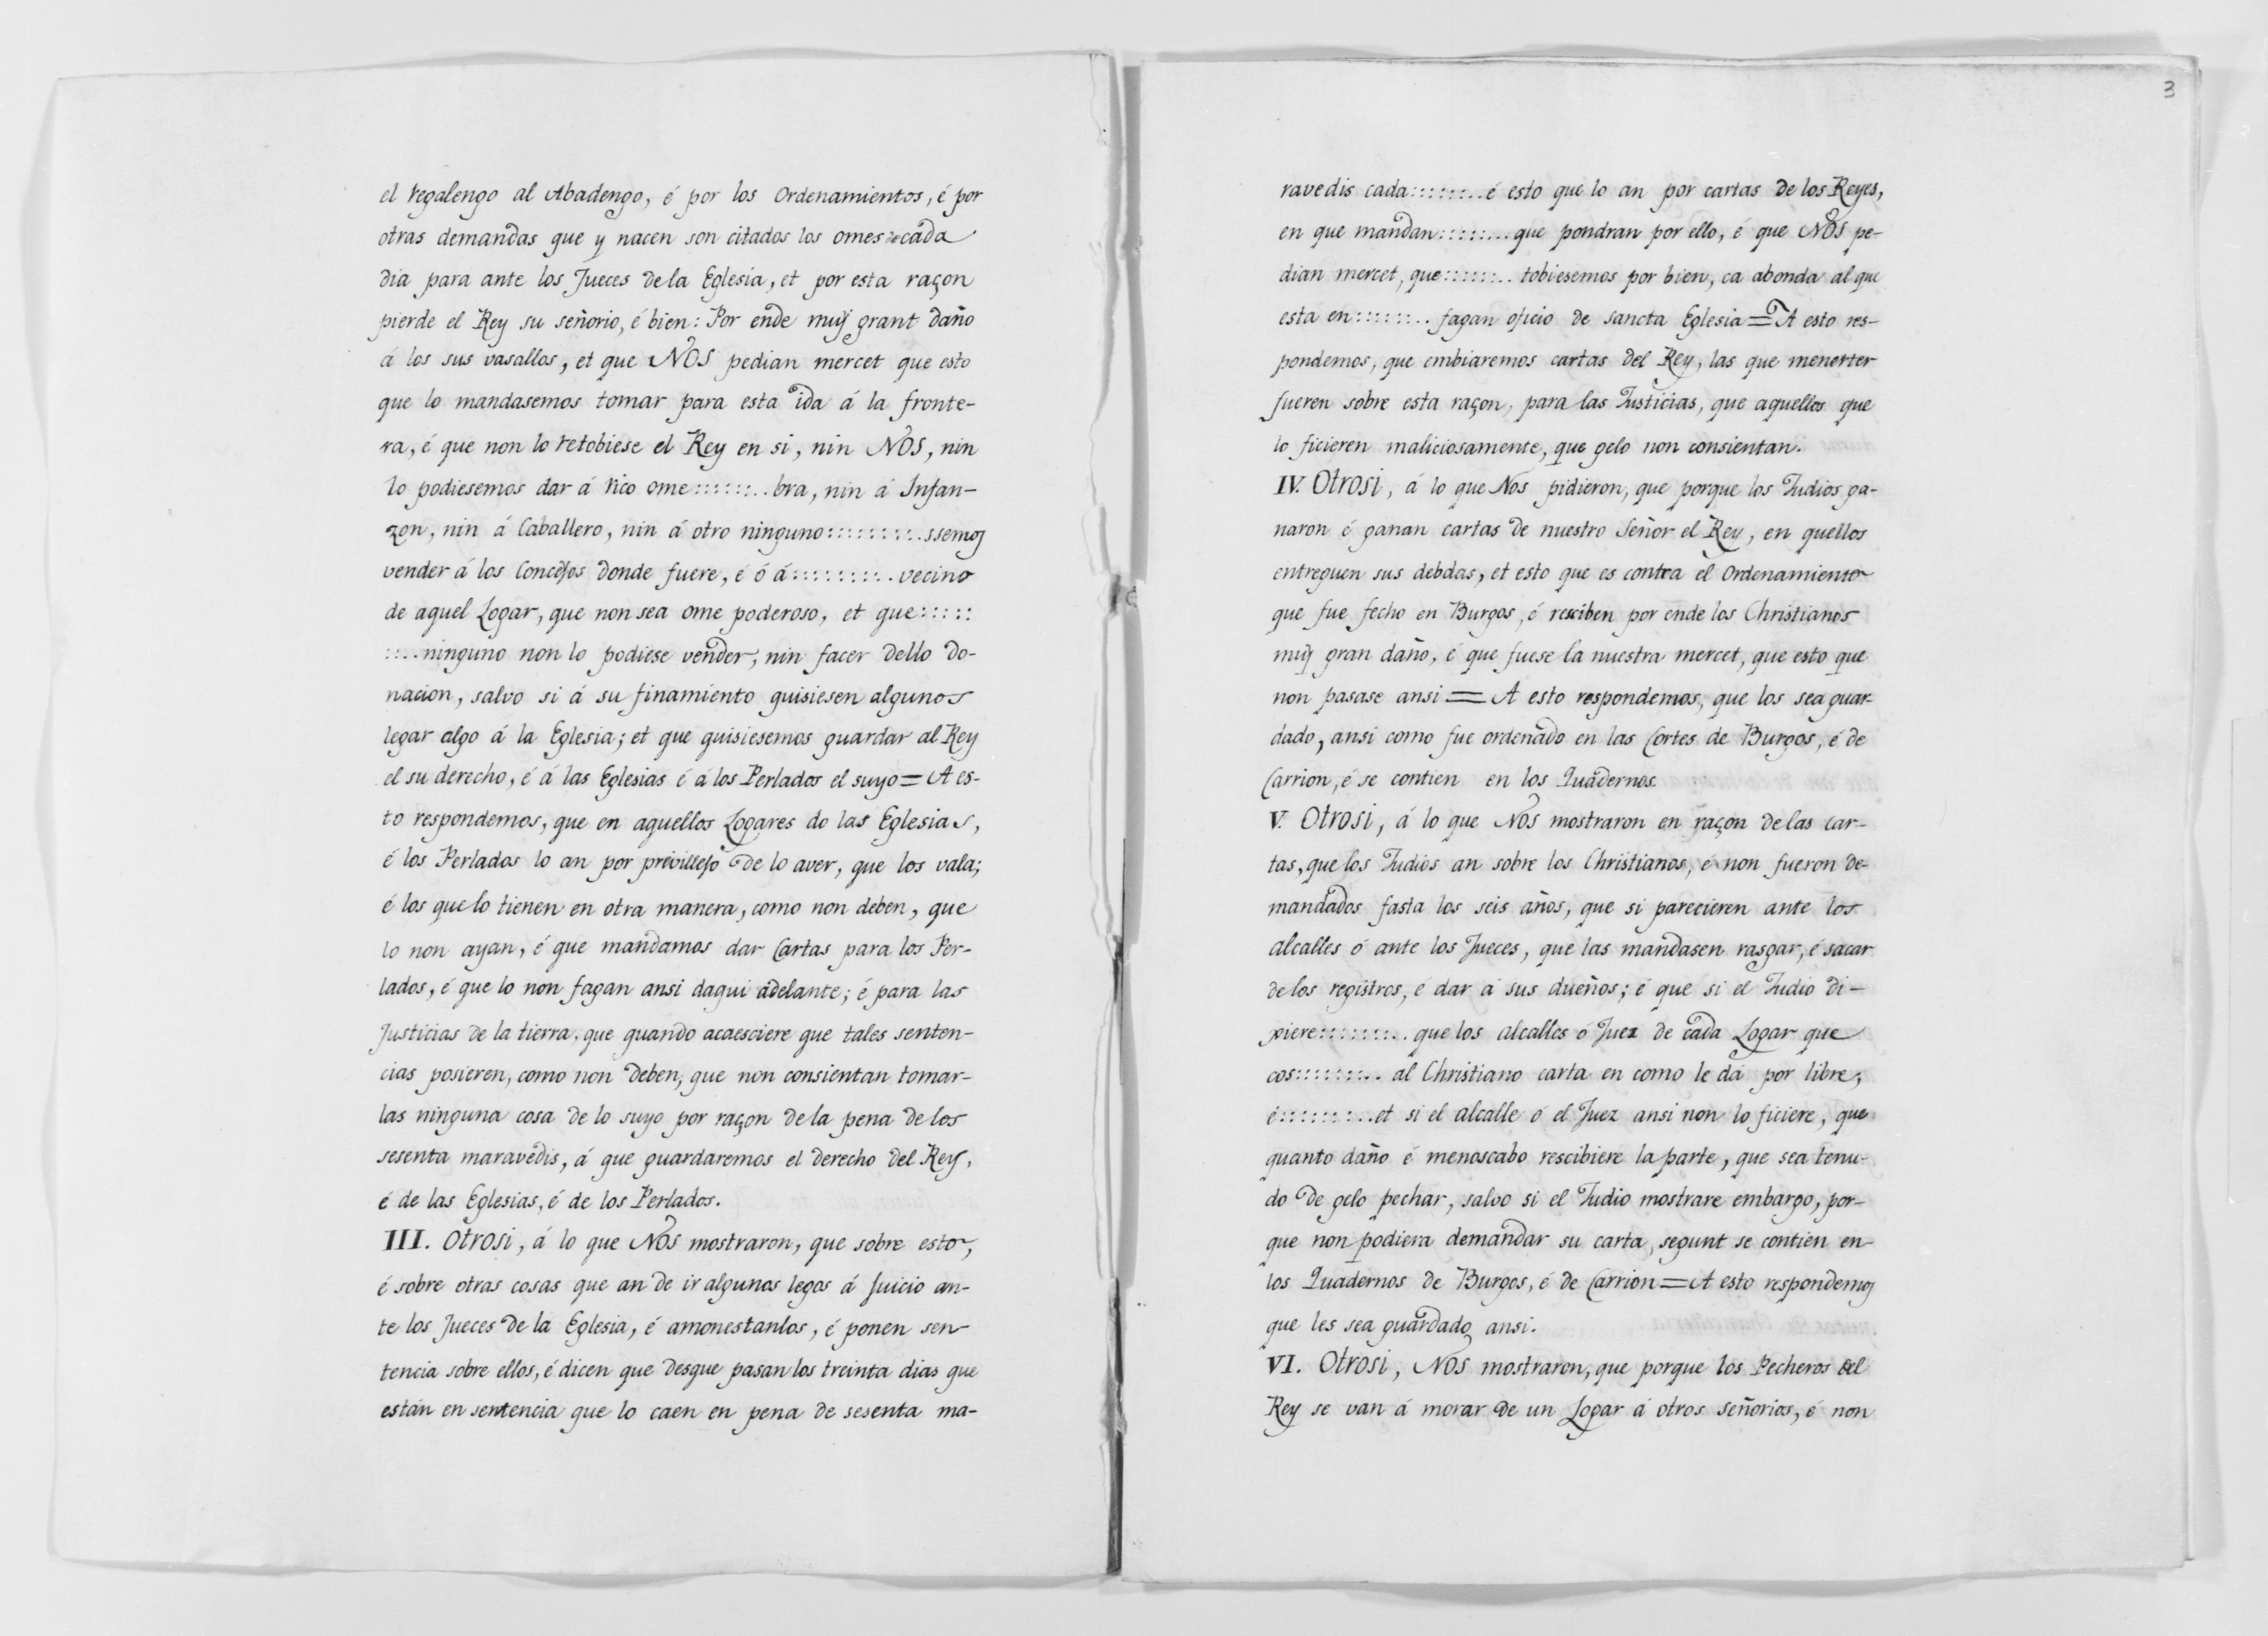 el regalengo al Abadengo, é por los Ordenamientos, é por
otras demandas que y nacen son citados los omes de cada
dia para ante los Jueces de la Eglesia, et por esta raçon
pierde el Rey su señorio, é bien: Por ende muy grant daño
á los sus vasallos, et que NOS pedian mercet que esto
que lo mandasemos tomar para esta ida á la fronte-
ra, é que non lo retobiese el Rey en si, nin NOS, nin
lo podiesemos dar á rico ome::::::..bra, nin á Infan-
zon, nin á Caballero, nin á otro ninguno::::::::.ssemos
vender á los Concejos donde fuere, é ó á::::::::.vecino
de aquel Logar, que non sea ome poderoso, et que:::::
::..ninguno non lo podiese vender, nin facer dello do-
nacion, salvo si á su finamiento quisiesen algunos
legar algo á la Eglesia; et que quisiesemos guardar al Rey
el su derecho, é á las Eglesias é á los Perlados el suyo = A es-
to respondemos, que en aquellos Logares do las Eglesias,
é los Perlados lo an por previllejo de lo aver, que los vala;
é los que lo tienen en otra manera, como non deben, que
lo non ayan, é que mandamos dar Cartas para los Per-
lados, é que lo non fagan ansi daqui adelante; é para las
Justicias de la tierra, que quando acaesciere que tales senten-
cias posieren, como non deben, que non consientan tomar-
las ninguna cosa de lo suyo por raçon de la pena de los
sesenta maravedis, á que guardaremos el derecho del Rey,
é de las Eglesias, é de los Perlados.
III. Otrosi, á lo que NOS mostraron, que sobre esto,
é sobre otras cosas que an de ir algunos legos á juicio an-
te los Jueces de la Eglesia, é amonestanlos, é ponen sen-
tencia sobre ellos, é dicen que desque pasan los treinta dias que
están en sentencia que lo caen en pena de sesenta ma-
3
ravedis cada:::::::..é esto que lo an por cartas de los Reyes,
en que mandan::::::...que pondran por ello, é que NOS pe-
dian mercet, que::::::..tobiesemos por bien, ca abonda al que
esta en::::::..fagan oficio de sancta Eglesia = A esto res-
pondemos, que embiaremos cartas del Rey, las que menester
fueren sobre esta raçon, para las Justicias, que aquellos que
lo ficieren maliciosamente, que gelo non consientan.
IV. Otrosi, á lo que Nos pidieron, que porque los Judios ga-
naron é ganan cartas de nuestro Señor el Rey, en quellos
entreguen sus debdas, et esto que es contra el Ordenamiento
que fue fecho en Burgos, é resciben por ende los Christianos
muy gran daño, é que fuese la nuestra mercet, que esto que
non pasase ansi = A esto respondemos, que los sea guar-
dado, ansi como fue ordenado en las Cortes de Burgos, é de
Carrion, é se contien en los Quadernos.
V. Otrosi, á lo que NOS mostraron en raçon de las car-
tas, que los Judios an sobre los Christianos, é non fueron de-
mandados fasta los seis años, que si parecieren ante los
alcalles ó ante los Jueces, que las mandasen rasgar, é sacar
de los registros, é dar á sus dueños; é que si el Judio di-
xiere::::::::..que los alcalles ó Juez de cada Logar que
cos:::::::..al Christiano carta en como le dá por libre;
é:::::::...et si el alcalle ó el Juez ansi non lo ficiere, que
quanto daño é menoscabo rescibiere la parte, que sea tenu-
do de gelo pechar, salvo si el Judio mostrare embargo, por-
que non podiera demandar su carta, segunt se contien en
los Quadernos de Burgos, é de Carrion = A esto respondemos
que les sea guardado ansi.
VI. Otrosi, NOS mostraron, que porque los Pecheros del
Rey se van á morar de un Logar á otros señorios, é non